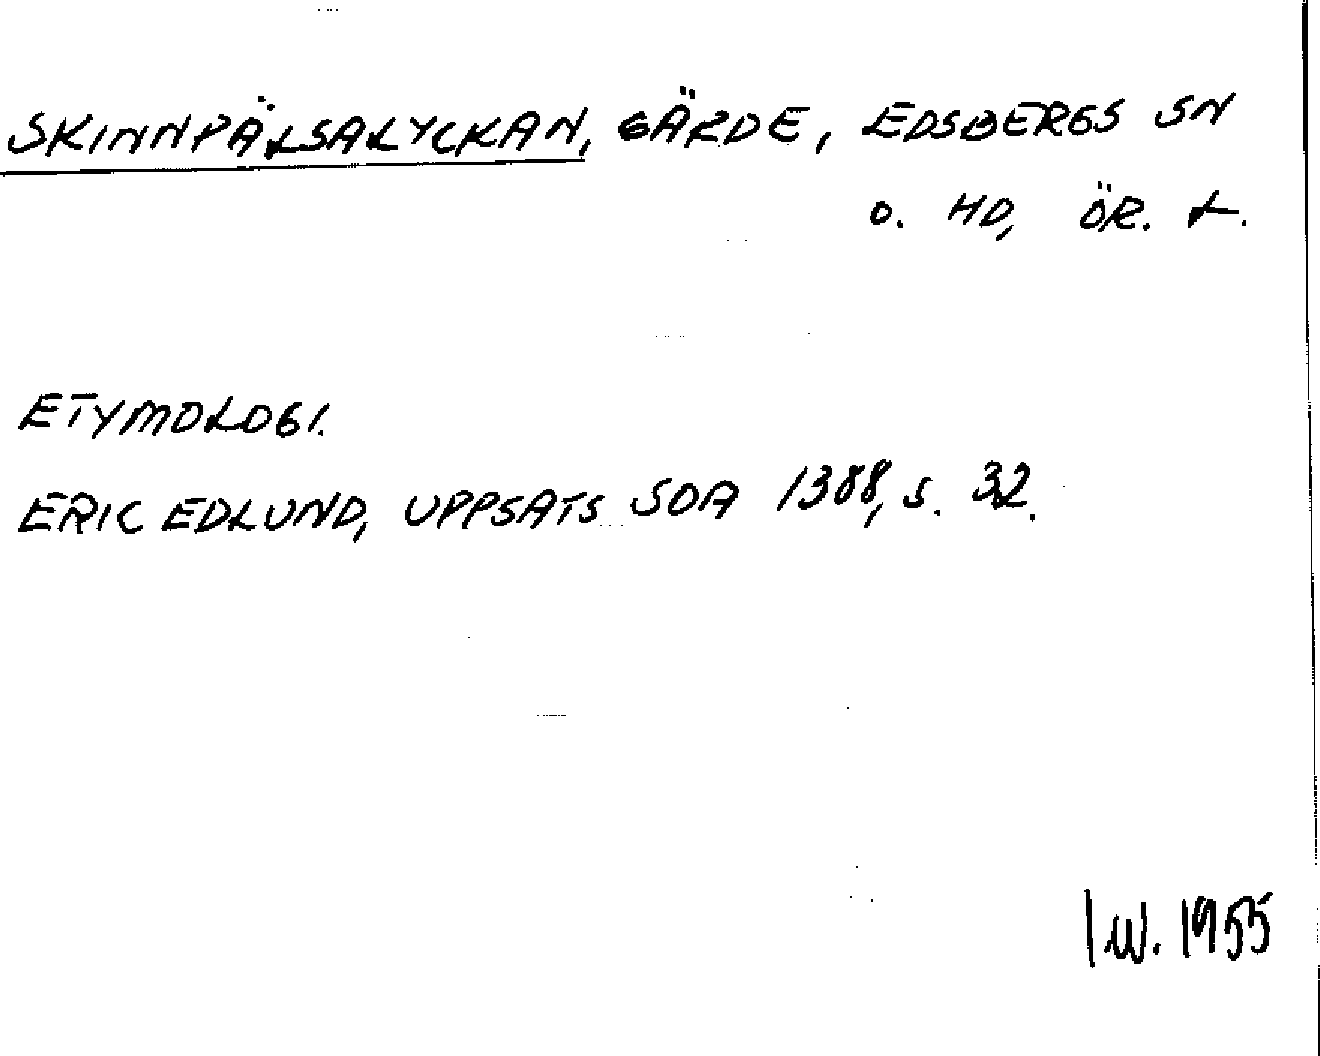 SKINNPÄLSALYCKAN, GÄRDE, EDSBERGS SN
O. HD, ÖR. L.
ETYMOLOGI.
ERIC EDLUND, UPPSATS SOA 1388, S. 32.
I.W. 1955